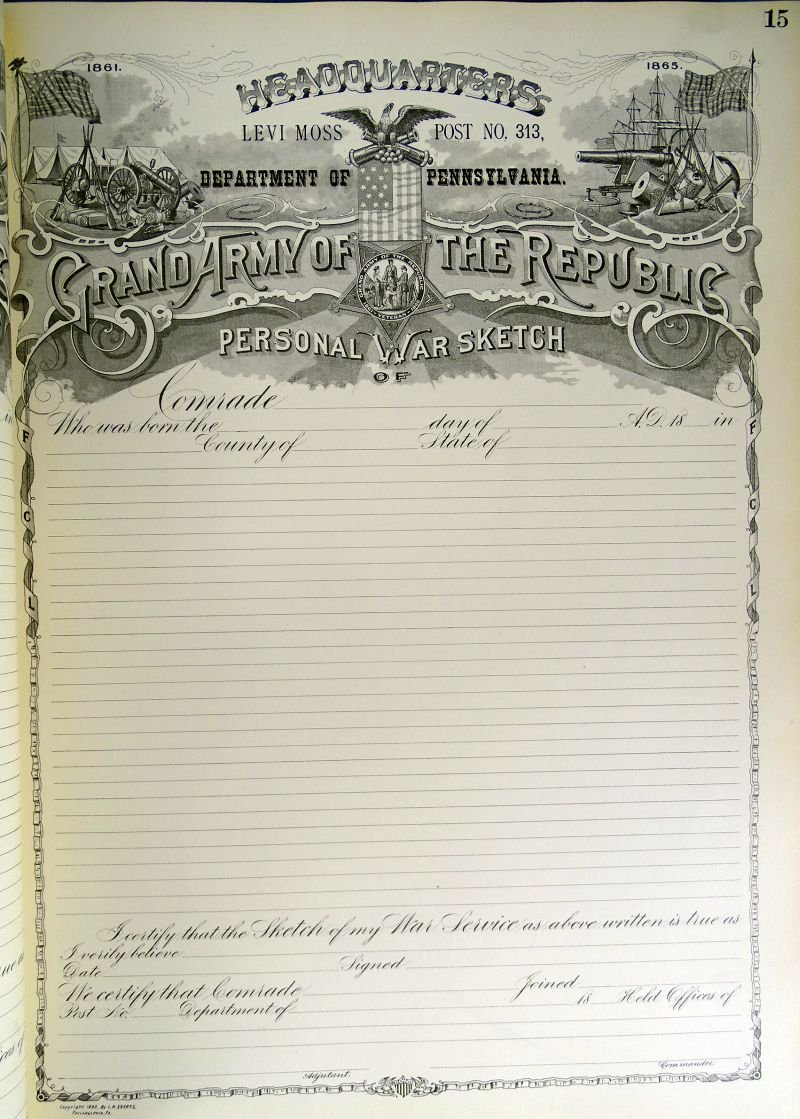 15
1861.
1865.
HEADQUARTERS
LEVI MOSS POST NO. 313,
DEPARTMENT OF PENNSYLVANIA.
GRAND ARMY OF THE REPUBLIC
GRAND ARMY OF THE REPUBLIC
VETERAN
PERSONAL WAR SKETCH
OF
Comrade
Who was born the day of A.D. 18 in
County of State of
F F
C C
L L
I certify that the Sketch of my War Service as above written is true as
I verily believe
Date Signed
We certify that Comrade Joined
Post No. Department of 18 Held Offices of
Adjutant. Commander.
Copyright 1890, By L.H. EVERTS,
PHILADELPHIA, PA.